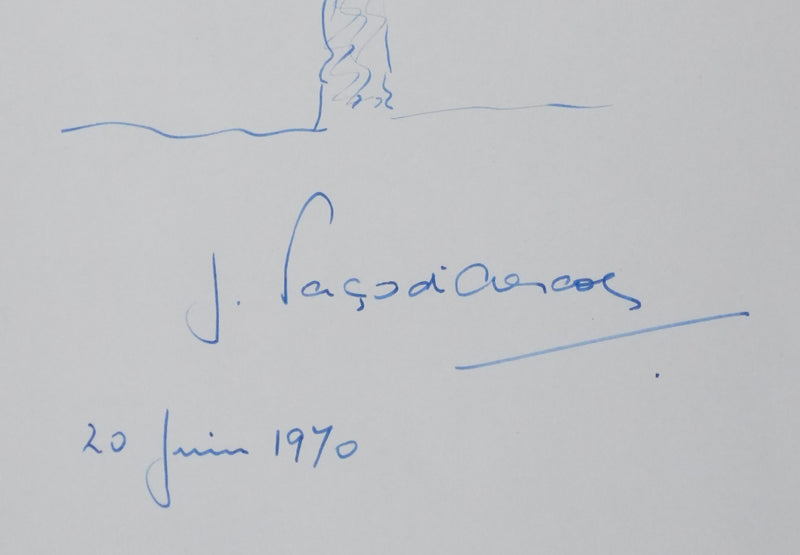 J. Paço d'Arcos
20 Juin 1970